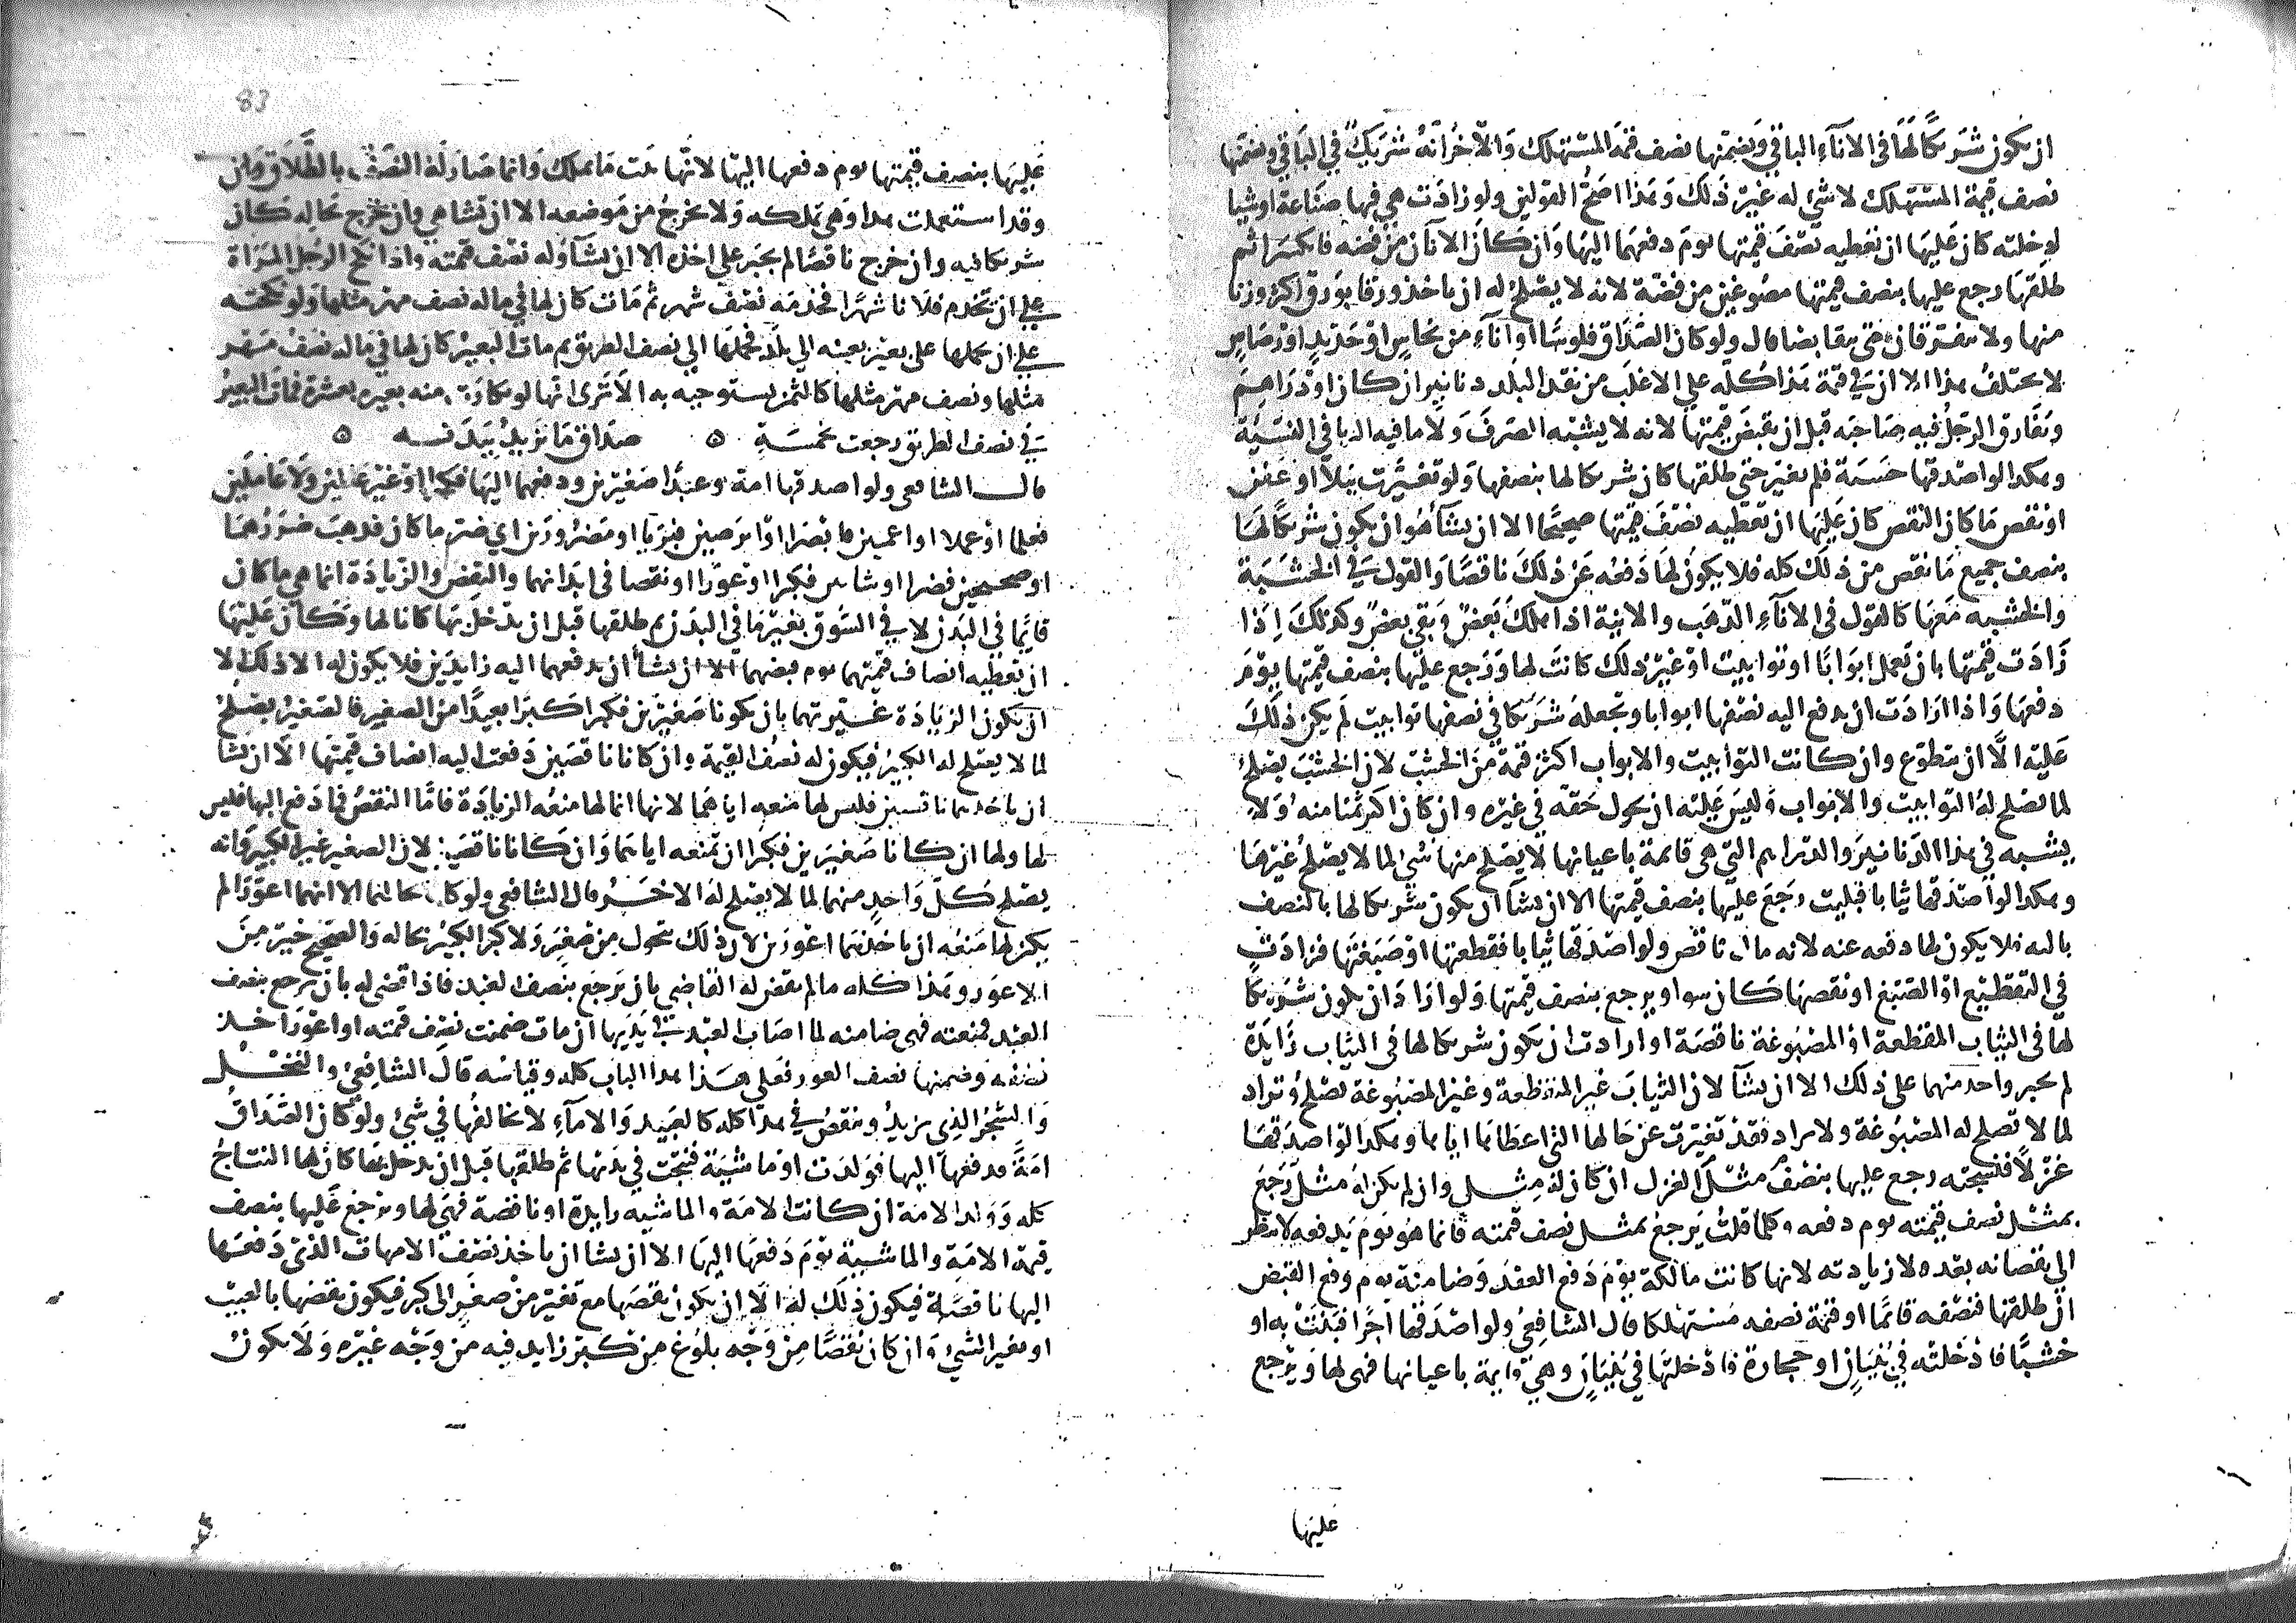 ان يكون شريكا لها فى الاناء الباقي ويضمنها نصف قيمة المستهلك والاخر انه شريك في الباقي ويضمنها
نصف قيمة المستهلك لا شئ له غير ذلك وهذا اصح القولين ولو زادت هي فيها صناعة او شيا
ادخلته كان عليها ان تعطيه نصف قيمتها يوم دفعهما اليها وان كان الاناآن من فضة فانكسرا ثم
طلقها رجع عليها بنصف قيمتها مصوغين من فضة لانه لا يصلح له ان ياخذ ورقا بورق اكثر وزنا
منها ولا يتفرقان حتى يتقابضا قال ولو كان الصداق فلوسا او اناء من نحاس او حديد او رصاص
لا يختلف هذا الا ان في قيمة هذا كله علي الاغلب من نقد البلد دنانير ان كان او دراهم
ويفارق الرجل فيه صاحبه قبل ان يقبض قيمتها لانه لا يشبه الصرف ولا ما فيه الربا في النسية
وهكذا لو اصدقها خشبة فلم تغير حتى طلقها كان شريكا لها بنصفها ولو تغيرت ببلا او عفن
او نقص ما كان النقص كان عليها ان تعطيه نصف قيمتها صحيحا الا ان يشآ هو ان يكون شريكا لها
بنصف جميع ما نقص من ذلك كله فلا يكون لها دفعه عن ذلك ناقصا والقول في الخشبة
والخشبه معها كالقول فى الاناء الذهب والانية اذا هلك بعض وبقي بعض وكذلك اذا
زادت قيمتها بان تعمل ابوابا او توابيت او غير ذلك كانت لها ورجع عليها بنصف قيمتها يوم
دفعها واذا ارادت ان تدفع اليه نصفها ابوابا وتجعله شريكا في نصفها توابيت لم يكن ذلك
عليه الا ان يتطوع وان كانت التوابيت والابواب اكثر قيمة من الخشب لان الخشب يصلح
لما لا تصلح له التوابيت والابواب وليس عليه ان يحول حقه في غيره وان كان اكثر ثمنا منه ولا
يشبه في هذا الدنانير والدراهم التي هي قائمة باعيانها لا يصلح منها شي لما لا يصلح غيرها
وهكذا لو اصدقها ثيابا فبليت رجع عليها بنصف قيمتها الا ان يشآ ان يكون شريكا لها بالنصف
بالية فلا يكون لها دفعه عنه لانه مال ناقص ولو اصدقها ثيابا فقطعتها او صبغتها فزادت
في التقطيع او الصبغ او نقصها كان سوا ويرجع بنصف قيمتها ولو اراد ان يكون شريكا
لها فى الثياب المقطعة او المصبوغة ناقصة او ارادت ان يكون شريكا لها فى الثياب زايدة
لم يجبر واحد منهما على ذلك الا ان يشآ لان الثياب غير المقطعة وغير المصبوغة تصلح وتراد
لما لا تصلح له المصبوغة ولا تراد فقد تغيرت عن حالها التى اعطاها اياها وهكذا لو اصدقها
غزلا فنسجته رجع عليها بنصف مثل الغزل ان كان له مثل وان لم يكن له مثل رجع
بمثل نصف قيمته يوم دفعه وكلما قلت يرجع بمثل نصف قيمته فانما هو يوم يدفعه لا ينظر
الي نقصانه بعد ولا زيادته لانها كانت مالكة يوم دفع العقد وضامنة يوم وقع القبض
ان طلقها فنصفه قائما او قيمة نصفه مستهلكا قال الشافعى ولو اصدقها اجرا فبنت به او
خشبا فادخلته في بنيان او حجارة فادخلتها في بنيان وهي قايمة باعيانها فهى لها ويرجع
عليها
83
عليها بنصف قيمتها يوم دفعها اليها لانها بنت ما تملك وانما صار له النصف بالطلاق وان
وقد استعملت هذا وهي تملكه ولا يخرج من موضعه الا ان تشا هي وان خرج بحاله كان
شريكا فيه وان خرج ناقصا لم يجبر علي اخذه الا ان يشآ وله نصف قيمته واذا نكح الرجل المراة
علي ان يخدم فلانا شهرا فخدمه نصف شهر ثم مات كان لها في ماله نصف مهر مثلها ولو نكحته
علي ان يحملها على بعير بعينه الي بلد فحملها الي نصف الطريق ثم مات البعير كان لها في ماله نصف مهر
مثلها ونصف مهر مثلها كالثمن يستوجبه به الا ترى انها لو تكارت منه بعيره بعشرة فمات البعير
في نصف الطريق رجعت بخمسة ٥ صداق ما يزيد ببدنه ٥
قال الشافعى ولو اصدقها امة وعبدا صغيرين ودفعهما اليها فكبرا او غير عالمين ولا عاملين
فعلما او عملا او اعميين فابصرا او ابرصين فبريا او مضرورين اي ضرر ما كان فذهب ضررهما
او صحيحين فضرا او شابين فكبرا او عورا او نقصا فى ابدانهما والنقص والزيادة انما هي ما كان
قايما في البدن لا في السوق بغير ما في البدن ثم طلقها قبل ان يدخل بها كانا لها وكان عليها
ان تعطيه انصاف قيمتهما يوم قبضهما الا ان تشأ ان تدفعهما اليه زايدين فلا يكون له الا ذلك الا
ان تكون الزيادة غيرتهما بان يكونا صغيرين فكبرا كبرا بعيدا من الصغير فالصغير يصلح
لما لا يصلح له الكبير فيكون له نصف القيمة وان كانا ناقصين دفعت اليه انصاف قيمتها الا ان يشا
ان ياخذهما ناقصين فليس لها منعه اياهما لانها انما لها منعه الزيادة فاما النقص فما دفع اليها فليس
لها ولها ان كانا صغيرين فكبرا ان تمنعه اياهما وان كانا ناقصين لان الصغير غير الكبير وانه
يصلح كل واحد منهما لما لا يصلح له الاخر قال الشافعى ولو كانا بحالهما الا انهما اعورا لم
يكن لها منعه ان ياخذهما اعورين لان ذلك تحول من صغر ولا كبر الكبير بحاله والصحيح خير من
الاعور وهذا كله ما لم يقض له القاضي بان يرجع بنصف العبد فاذا قضى له بان يرجع بنصف
العبد فمنعته فهى ضامنه لما اصاب العبد في يديها ان مات ضمنت نصف قيمته او اعور اخذ
نصفه وضمنها نصف العور فعلى هذا هذا الباب كله وقياسه قال الشافعي والنخل
والشجر الذى يزيد وينقص في هذا كله كالعبيد والامآء لا تخالفها في شئ ولو كان الصداق
امة فدفعها اليها فولدت او ماشية فنتجت في يديها ثم طلقها قبل ان يدخل بها كان لها النتاج
كله وولد الامة ان كانت الامة والماشيه زايدة او ناقصة فهي لها ويرجع عليها بنصف
قيمة الامة والماشية يوم دفعها اليها الا ان يشا ان ياخذ نصف الامهات الذى دفعها
اليها ناقصة فيكون ذلك له الا ان يكون نقصها مع تغير من صغر الى كبر فيكون نقصها بالعيب
او تغير الشئ وان كان نقصا من وجه بلوغ من كبر زايد فيه من وجه غيره ولا يكون